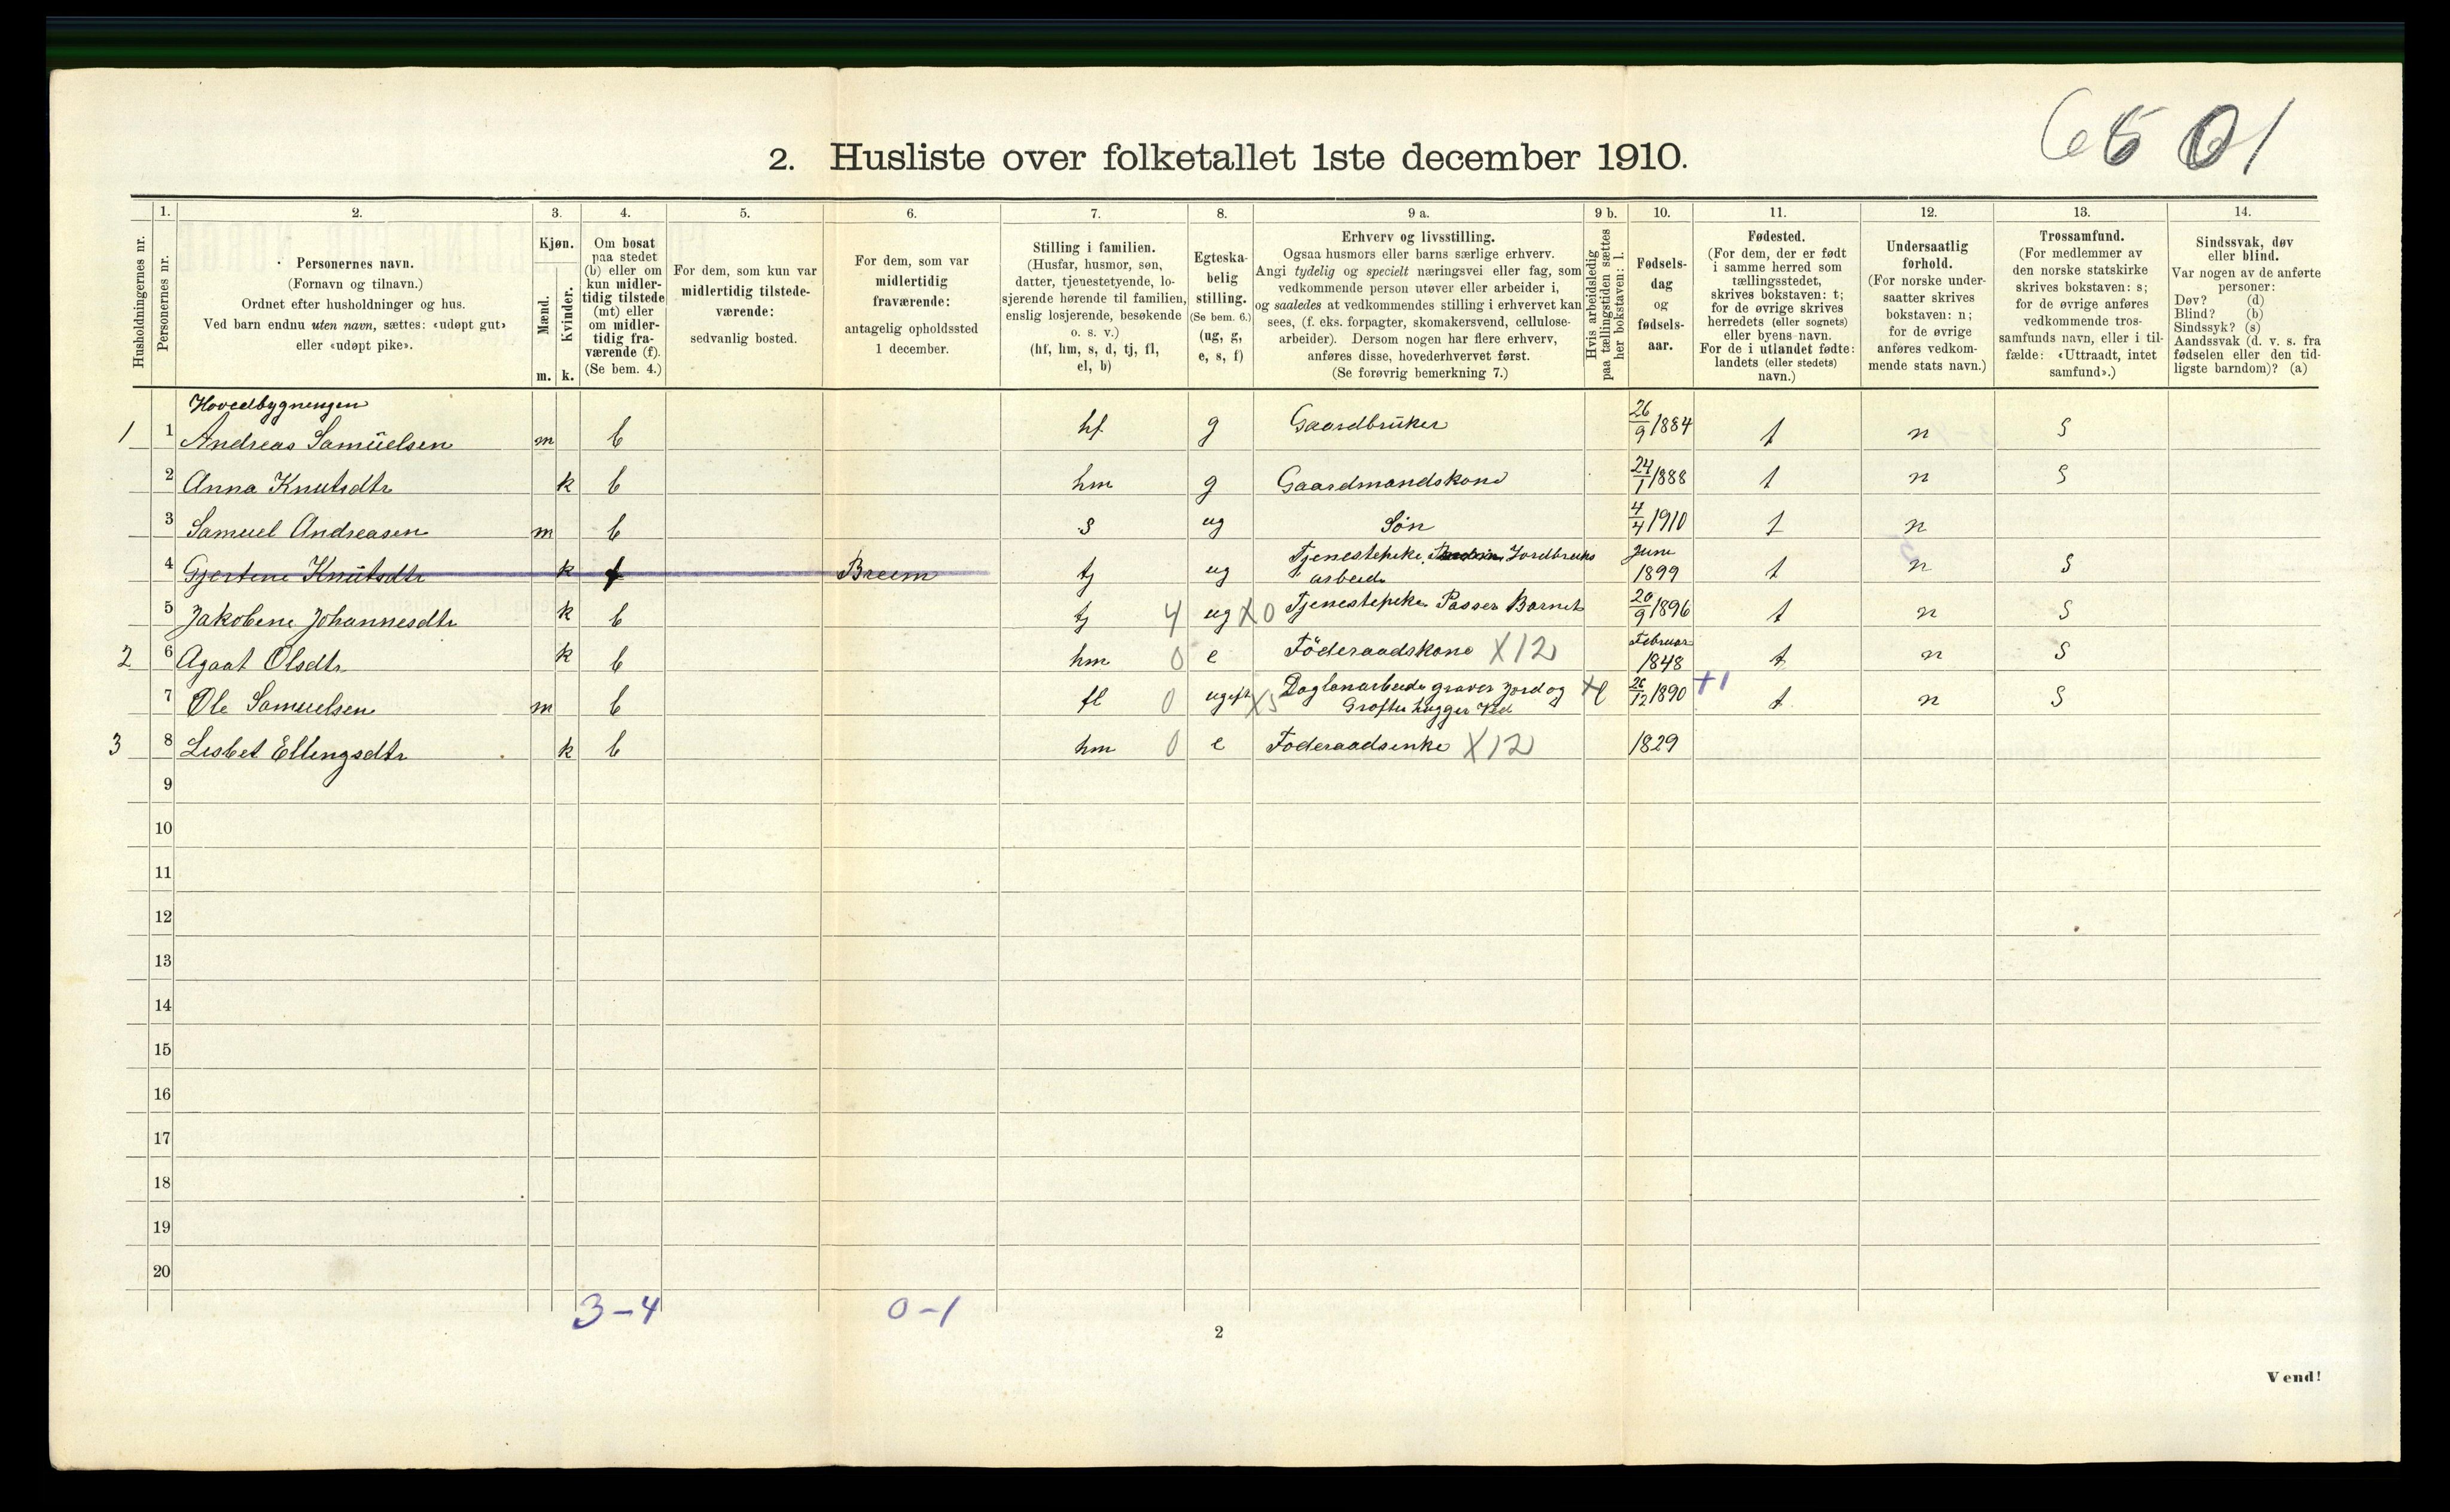 6501
2. Husliste over folketallet 1ste december 1910.
Husholdningernes nr.
1. Personernes nr.
2.
Personernes navn.
(Fornavn og tilnavn.)
Ordnet efter husholdninger og hus.
Ved barn endnu uten navn, sættes: «udøpt gut»
eller «udøpt pike».
3.
Kjøn.
Mænd. Kvinder.
m. k.
4.
Om bosat
paa stedet
(b) eller om
kun midler-
tidig tilstede
(mt) eller
om midler-
tidig fra-
værende (f).
(Se bem. 4.)
5.
For dem, som kun var
midlertidig tilstede-
værende:
sedvanlig bosted.
6.
For dem, som var
midlertidig
fraværende:
antagelig opholdssted
1 december.
7.
Stilling i familien.
(Husfar, husmor, søn,
datter, tjenestetyende, lo-
sjerende hørende til familien,
enslig losjerende, besøkende
o. s. v.)
(hf, hm, s, d, tj, fl,
el, b)
8.
Egteska-
belig
stilling.
(Se bem. 6.)
(ug, g,
e, s, f)
9 a.
Erhverv og livsstilling.
Ogsaa husmors eller barns særlige erhverv.
Angi tydelig og specielt næringsvei eller fag, som
vedkommende person utøver eller arbeider i,
og saaledes at vedkommendes stilling i erhvervet kan
sees, (f. eks. forpagter, skomakersvend, cellulose-
arbeider). Dersom nogen har flere erhverv,
anføres disse, hovederhvervet først.
(Se forøvrig bemerkning 7.)
9 b.
Hvis arbeidsledig
paa tællingstiden sættes
her bokstaven: l.
10.
Fødsels-
dag
og
fødsels-
aar.
11.
Fødested.
(For dem, der er født
i samme herred som
tællingsstedet,
skrives bokstaven: t;
for de øvrige skrives
herredets (eller sognets)
eller byens navn.
For de i utlandet fødte:
landets (eller stedets)
navn.)
12.
Undersaatlig
forhold.
(For norske under-
saatter skrives
bokstaven: n;
for de øvrige
anføres vedkom-
mende stats navn.)
13.
Trossamfund.
(For medlemmer av
den norske statskirke
skrives bokstaven: s;
for de øvrige anføres
vedkommende tros-
samfunds navn, eller i til-
fælde: «Uttraadt, intet
samfund».)
14.
Sindssvak, døv
eller blind.
Var nogen av de anførte
personer:
Døv? (d)
Blind? (b)
Sindssyk? (s)
Aandssvak (d. v. s. fra
fødselen eller den tid-
ligste barndom)? (a)
Hovedbygningen
1 1 Andreas Samüelsen m b hf g Gaardbrüker 26/9 1884 t n s
2 Anna Knutsdtr k b hm g Gaardmandskone 24/1 1888 t n s
3 Samuel Andreasen m b s ug Søn 4/4 1910 t n
4 Gjertine Knütsdtr k f Breem tj ug Tjenestepike Jordbruks
arbeide Juni 1899 t n s
5 Jakobene Johannesdtr k b tj 4 ug X0 Tjenestepike Passer Barnet 20/9 1896 t n s
2 6 Agaat Olsdtr k b hm 0 e Föderaadskone X12 Februar 1848 t n s
7 Ole Samuelsen m b fl 0 ugift X5 Daglønarbeide graver Jord og
Grøfter hugger Ved l 26/12 1890 +1 t n s
3 8 Lisbet Ellingsdtr k b hm 0 e Foderaadsenke X12 1829
9
10
11
12
13
14
15
16
17
18
19
20
3-4 0-1
2
Vend!